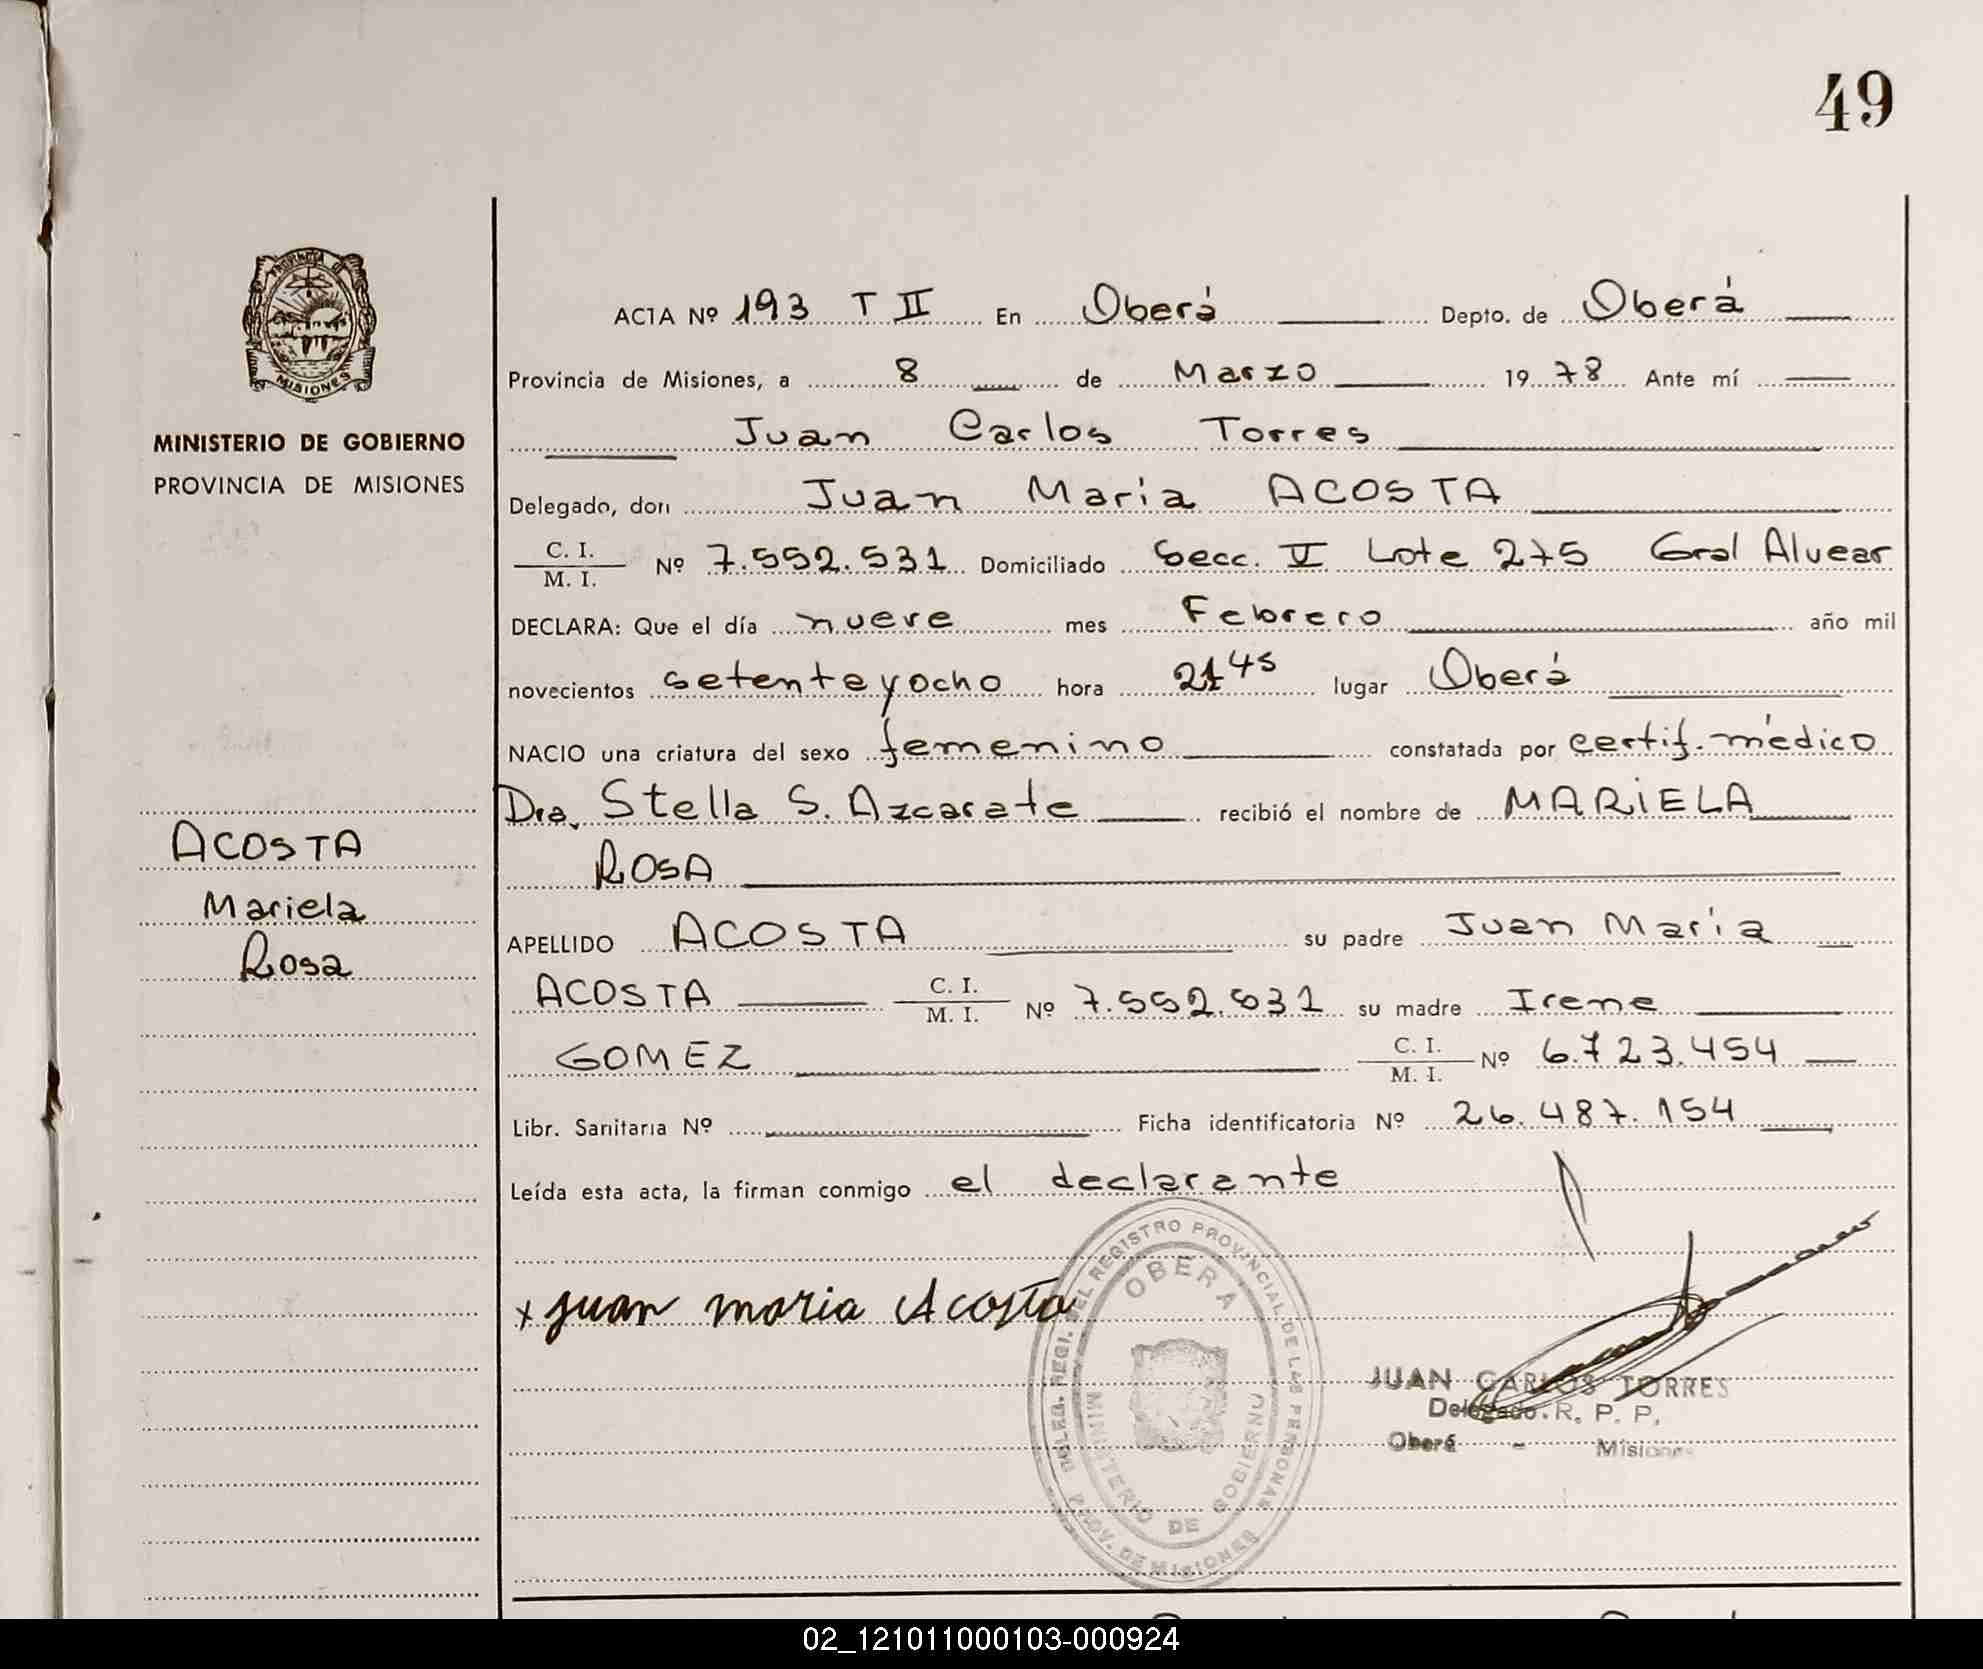 49
PROVINCIA DE
MISIONES
MINISTERIO DE GOBIERNO
PROVINCIA DE MISIONES
ACOSTA
Mariela
Rosa
ACTA Nº 193 T II En Oberá Depto. de Oberá
Provincia de Misiones, a 8 de Marzo 1978 Ante mí
Juan Carlos Torres
Delegado, don Juan Maria ACOSTA
C. I.
M. I. Nº 7.552.531 Domiciliado Secc. V Lote 275 Gral Alvear
DECLARA: Que el día nueve mes Febrero año mil
novecientos setenta y ocho hora 21 45 lugar Oberá
NACIO una criatura del sexo femenino constatada por certif. médico
Dra. Stella S. Azcarate recibió el nombre de MARIELA
ROSA
APELLIDO ACOSTA su padre Juan Maria
ACOSTA C. I.
M. I. Nº 7.552.531 su madre Irene
GOMEZ C. I.
M. I. Nº 6.723.454
Libr. Sanitaria Nº Ficha identificatoria Nº 26.487.154
Leída esta acta, la firman conmigo el declarante
x Juan maria Acosta
DELEG. REGI. DEL REGISTRO PROVINCIAL DE LAS PERSONAS
OBERA
MINISTERIO DE GOBIERNO
PROV. DE MISIONES
JUAN CARLOS TORRES
Delegado R. P. P.
Oberá - Misiones
02_121011000103-000924